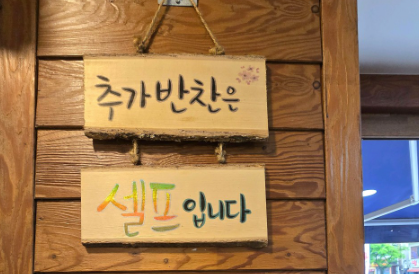 추가반찬은
셀프입니다